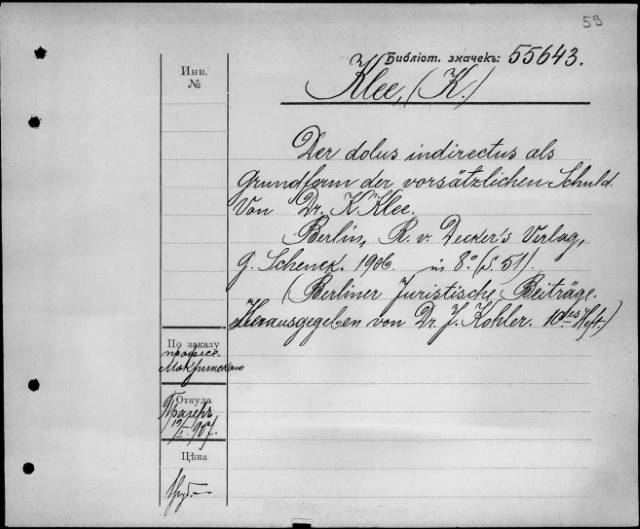 59
Библіот. значекъ: 55643.
Инв.
№
Klee, (K.)
Der dolus indirectus als
Grundform der vorsätzlichen Schuld.
Von Dr. K. Klee.
Berlin, R. v. Decker's Verlag,
G. Schenck. 1906. in 8.° (S. 51).
(Berliner Juristische Beiträge.
Herausgegeben von Dr. J. Kohler. 10tes Heft.)
По заказу
професс.
Откуда
1907.
Цѣна